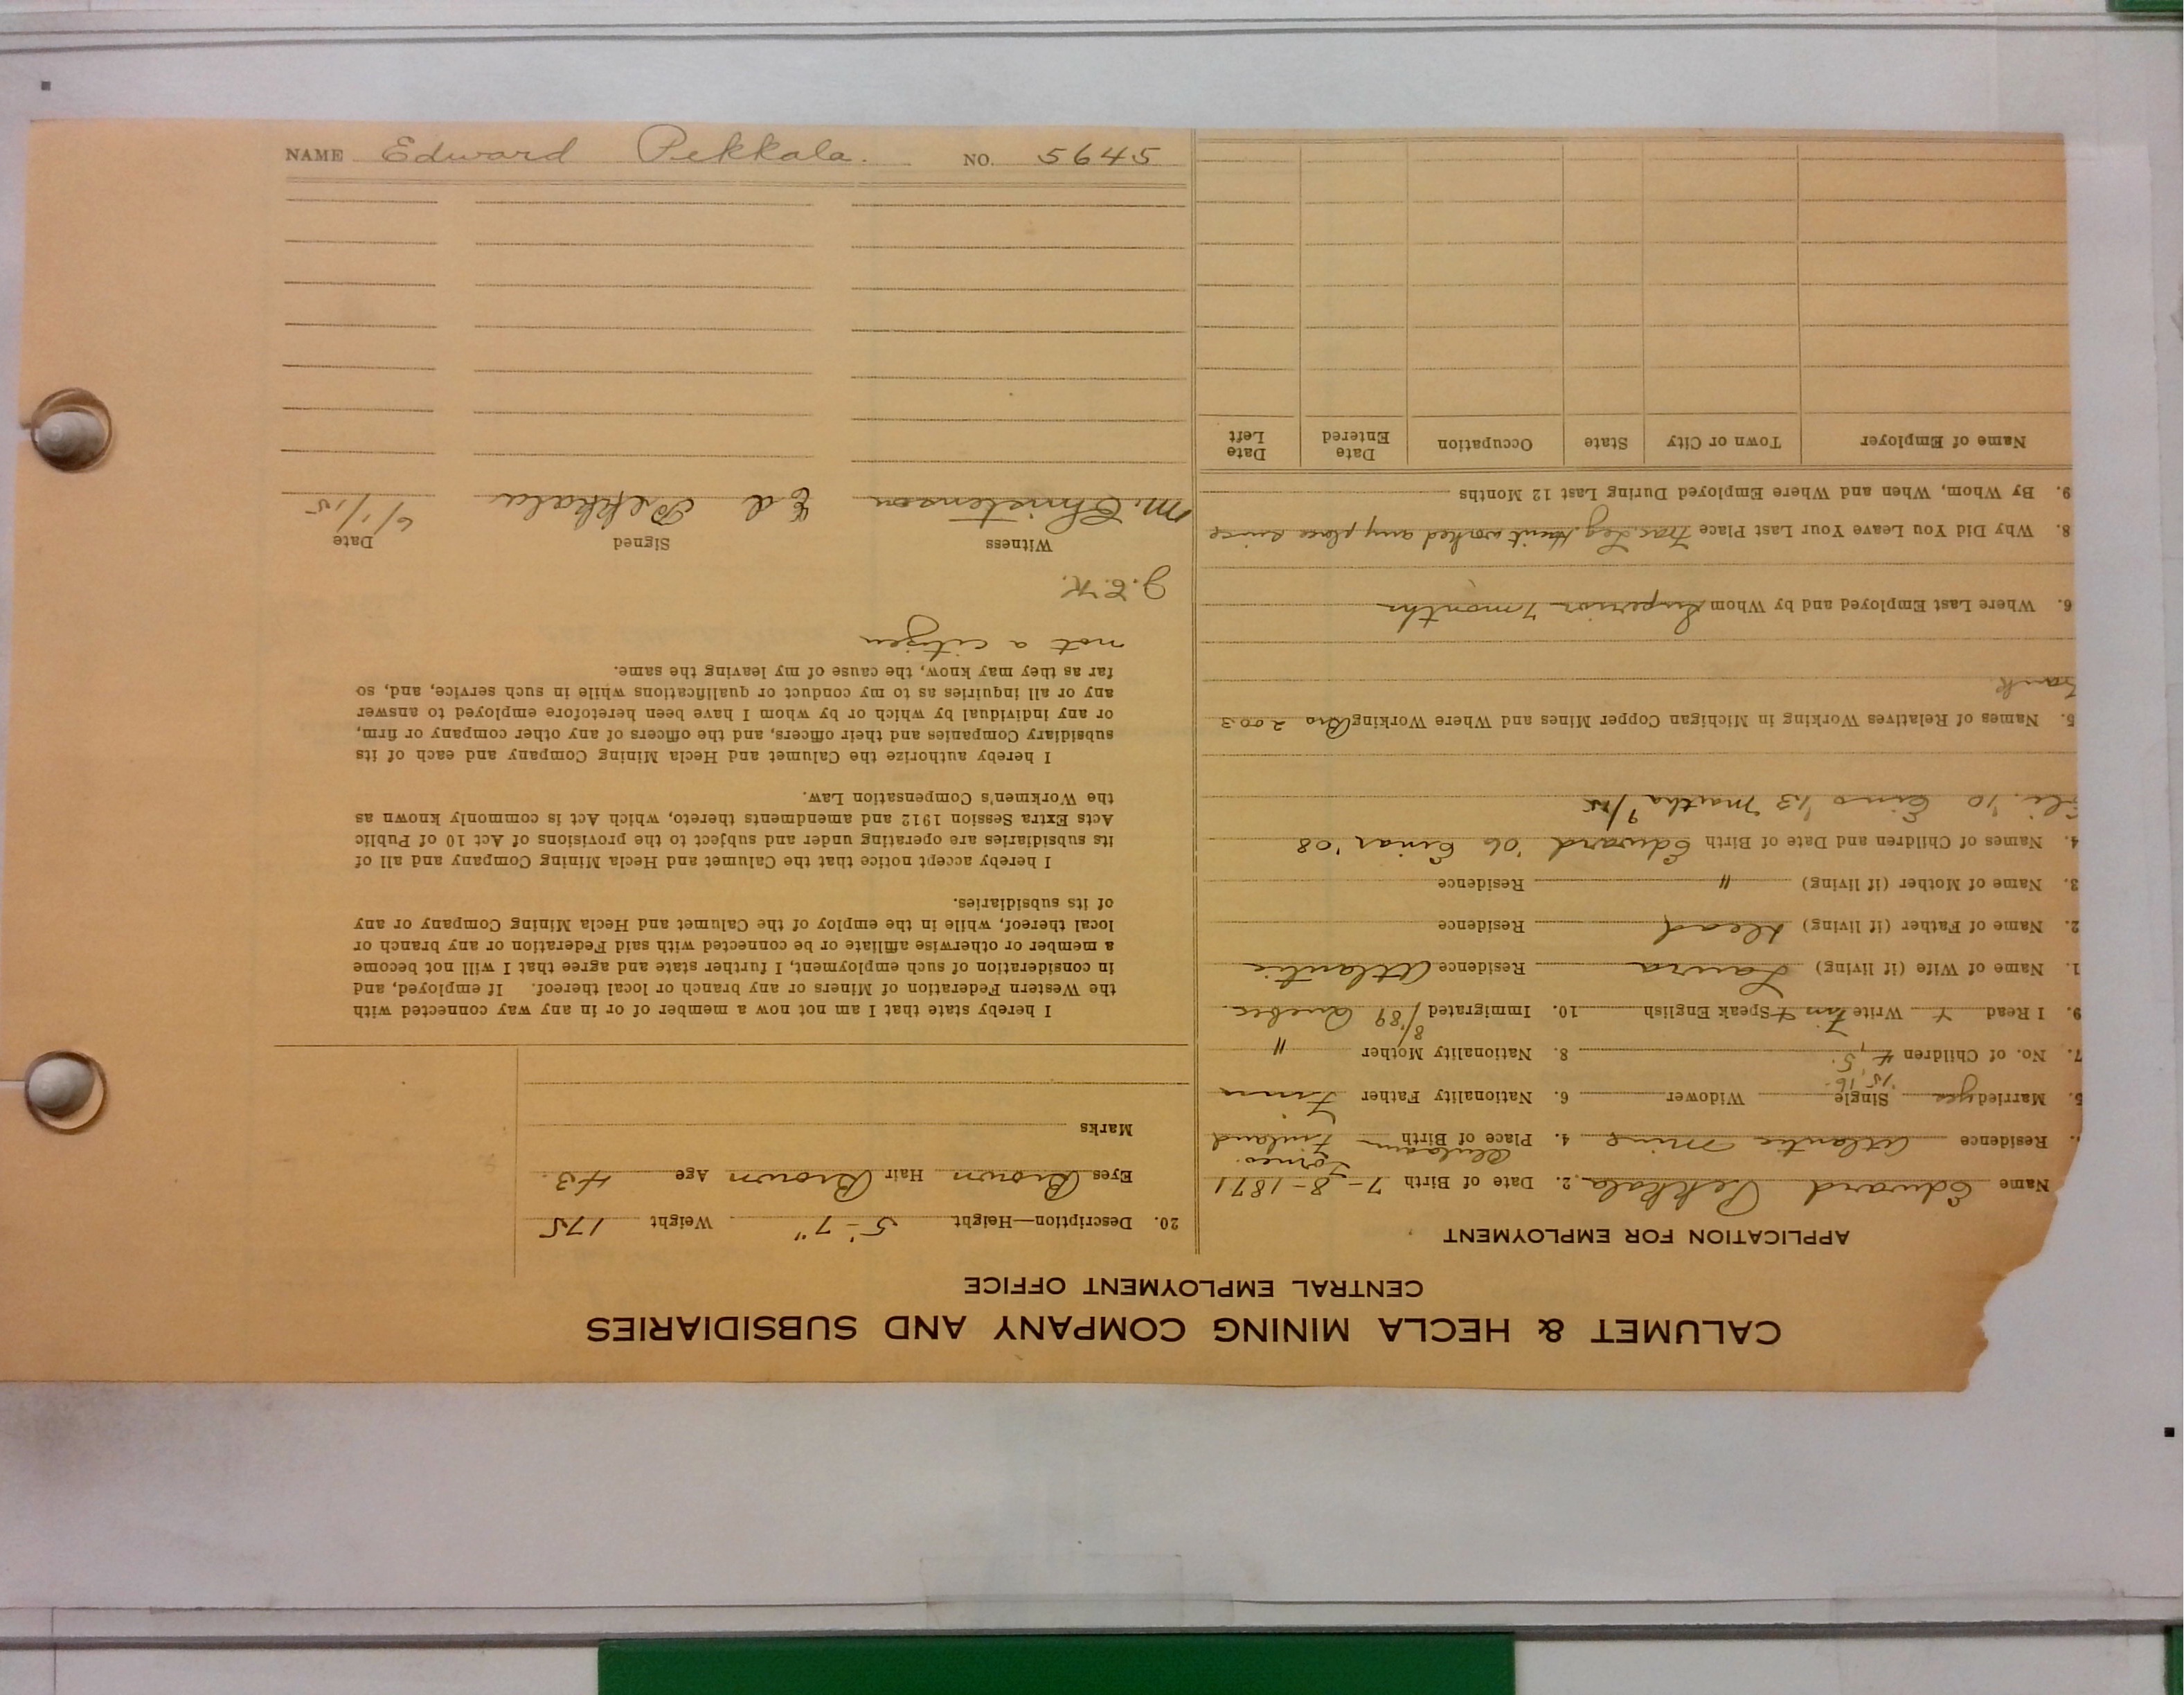 CALUMET & HECLA MINING COMPANY AND SUBSIDIARIES
CENTRAL EMPLOYMENT OFFICE
APPLICATION FOR EMPLOYMENT
Name Edward Pekkala 2. Date of Birth 7-8-1871
Torneo
Residence Atlantic Mine 4. Place of Birth Finland
5. Married yes Single Widower 6. Nationality Father Finn
'15, 16
7. No. of Children 5. 8. Nationality Mother "
9. I Read Y Write Finn Y Speak English 10. Immigrated 8/'89 Quebec
1. Name of Wife (if living) Laura Residence Atlantic
2. Name of Father (if living) Dead Residence
3. Name of Mother (if living) " Residence
4. Names of Children and Date of Birth Edward '06 Einar '08
'10 Eino '13 Martha 9/15
5. Names of Relatives Working in Michigan Copper Mines and Where Working Bro 2003
6. Where Last Employed and by Whom Superior 7 months
8. Why Did You Leave Your Last Place Frac. Leg. Hasn't worked any place since
9. By Whom, When and Where Employed During Last 12 Months
Name of Employer Town or City State Occupation Date Entered Date Left
20. Description—Height 5'-7" Weight 175
Eyes Brown Hair Brown Age 43.
Marks
I hereby state that I am not now a member of or in any way connected with
the Western Federation of Miners or any branch or local thereof. If employed, and
in consideration of such employment, I further state and agree that I will not become
a member or otherwise affiliate or be connected with said Federation or any branch or
local thereof, while in the employ of the Calumet and Hecla Mining Company or any
of its subsidiaries.
I hereby accept notice that the Calumet and Hecla Mining Company and all of
its subsidiaries are operating under and subject to the provisions of Act 10 of Public
Acts Extra Session 1912 and amendments thereto, which Act is commonly known as
the Workmen's Compensation Law.
I hereby authorize the Calumet and Hecla Mining Company and each of its
subsidiary Companies and their officers, and the officers of any other company or firm,
or any individual by which or by whom I have been heretofore employed to answer
any or all inquiries as to my conduct or qualifications while in such service, and, so
far as they may know, the cause of my leaving the same.
not a citizen
Witness Signed Date
M. Christenson Ed Pekkala 6/1/15
NAME Edward Pekkala. NO. 5645